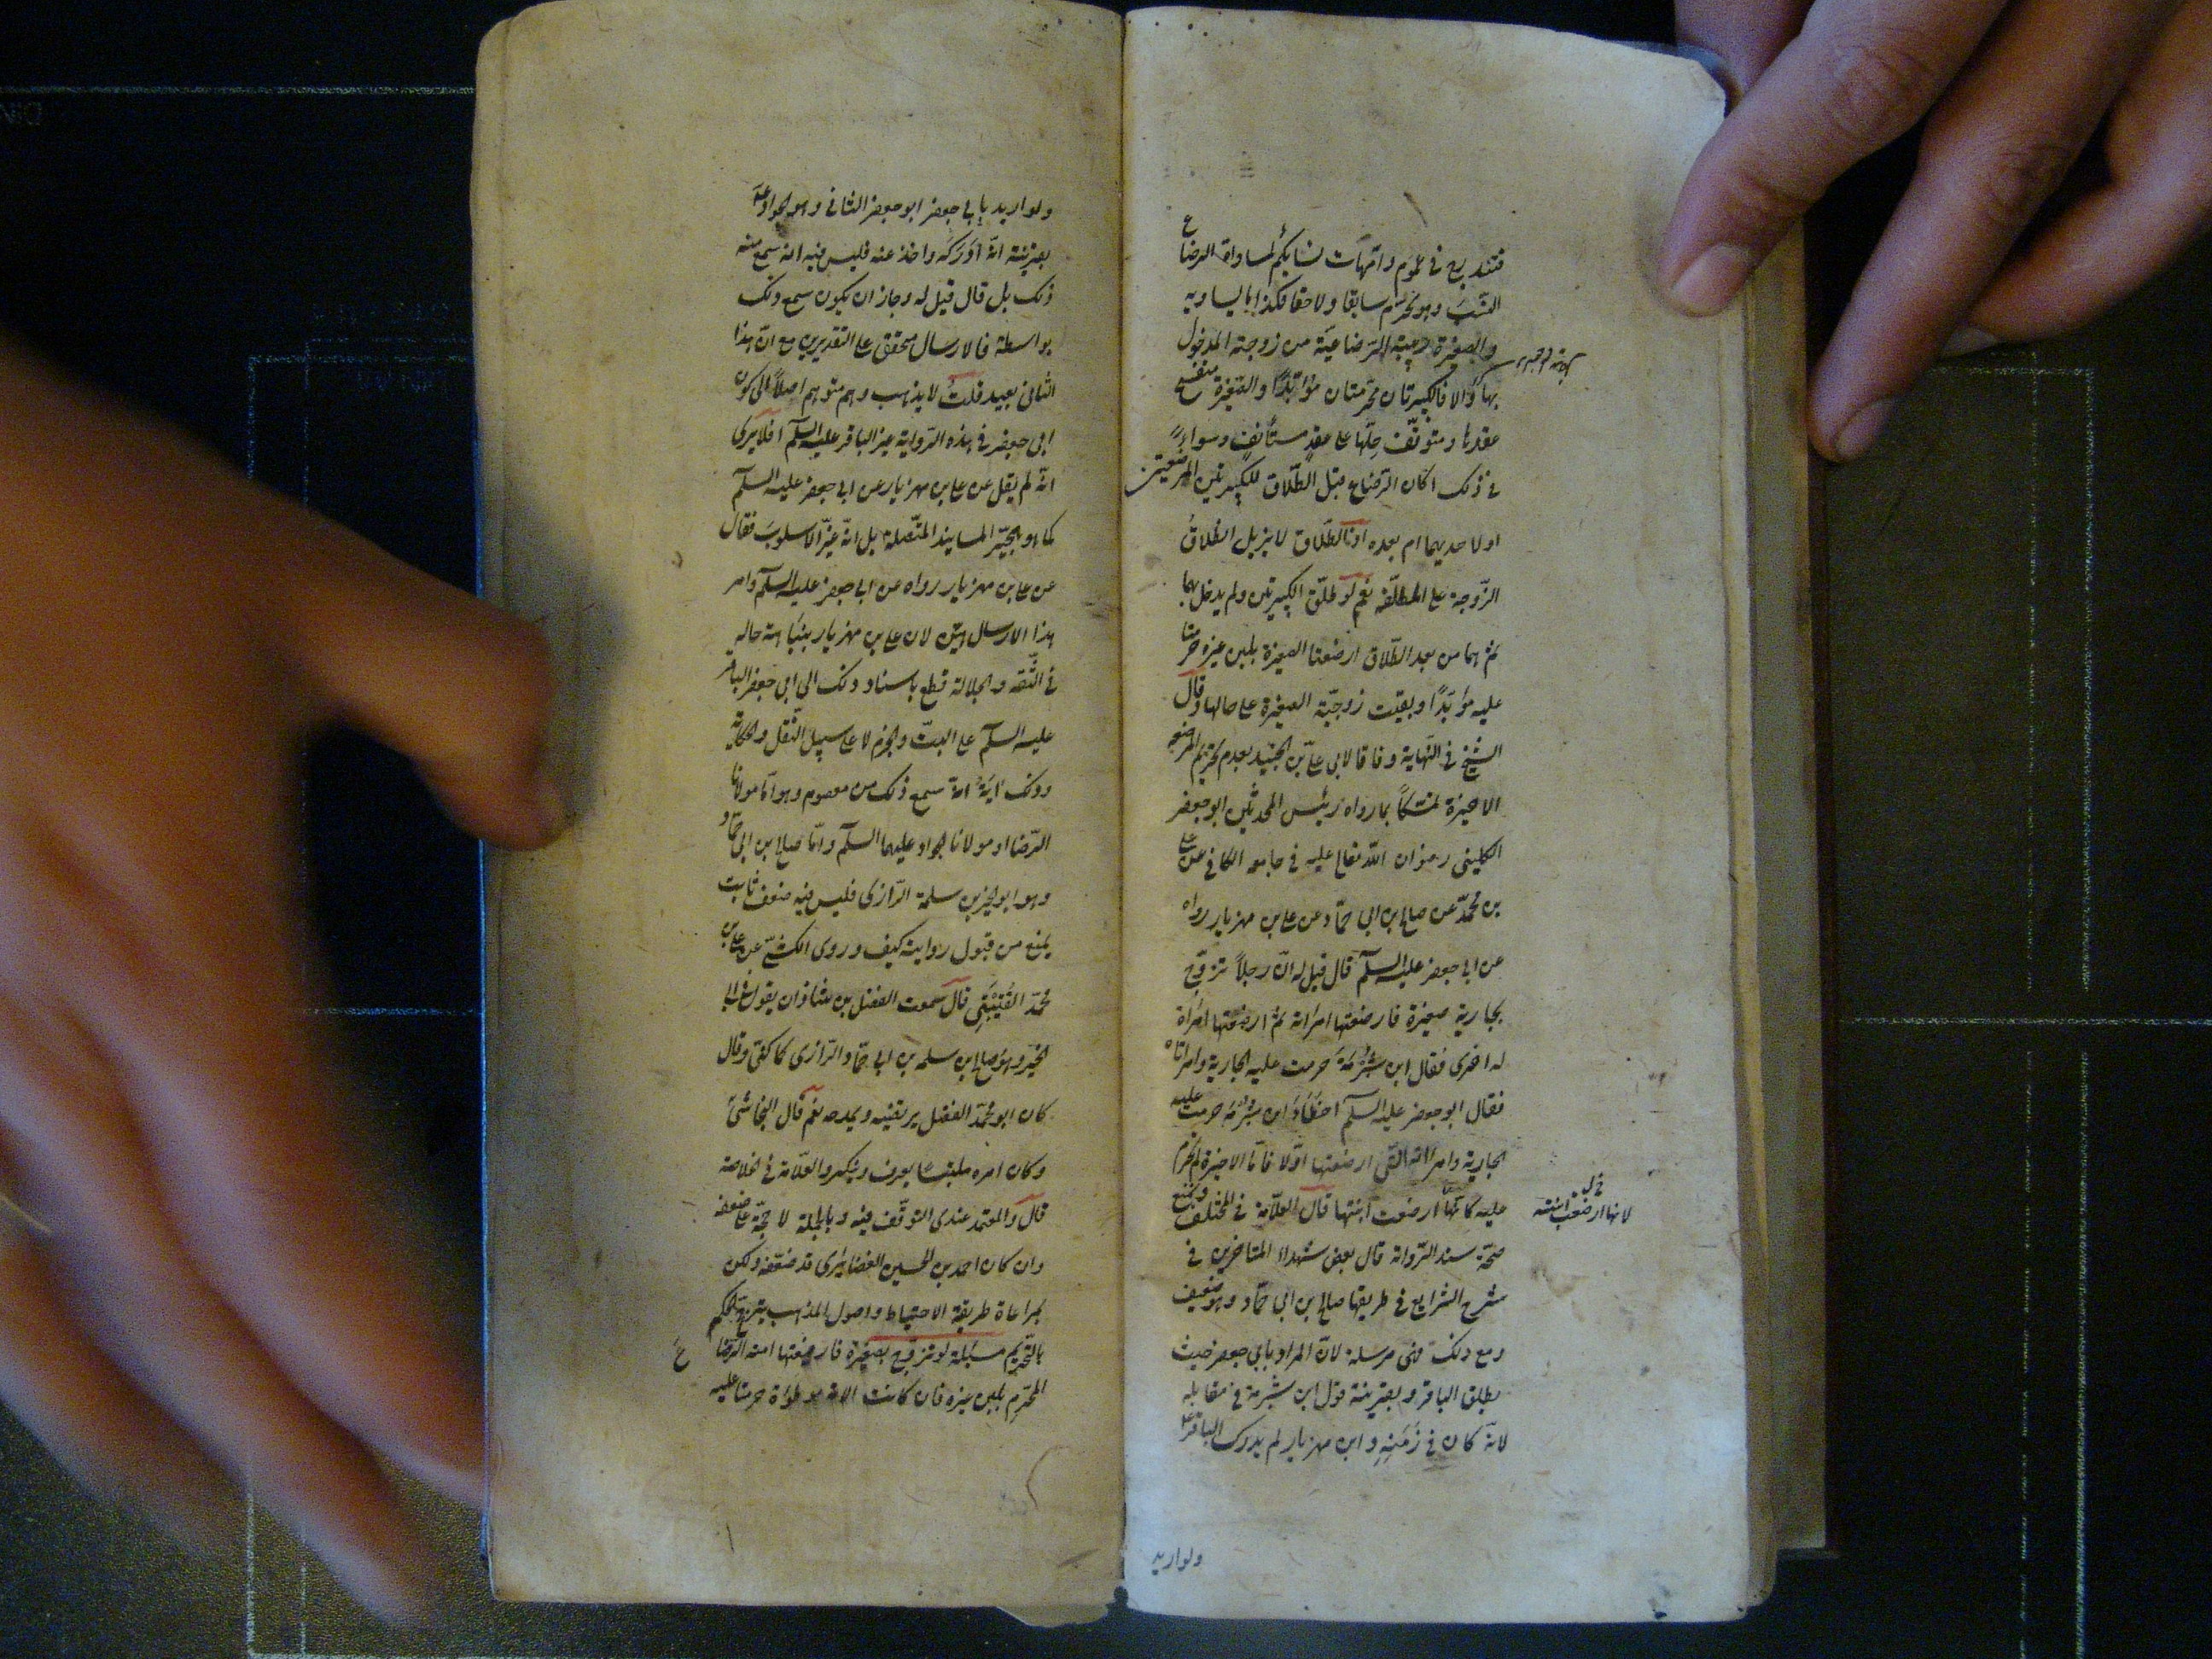 فتندرج في عموم وامهات نسائكم لمساواة الرضاع
النسب وهو يحرم سابقا ولاحقا فكذا ما يساويه
والصغيرة ربيبته الرضاعية من زوجته المدخول
بها والا فالكبيرتان محرمتان مؤبدًا والصغيرة منفسخ
عقدها ومتوقف حلها على عقد مستأنف وسواءٌ
في ذلك اكان الرضاع قبل الطلاق للكبيرتين المرضعتين
او لاحديهما ام بعده اذ الطلاق لا يزيل اطلاق
الزوجة على المطلقة نعم لو طلق الكبيرتين ولم يدخل بهما
ثم هما من بعد الطلاق ارضعتا الصغيرة بلبن غيره حرمتا
عليه مؤبدًا وبقيت زوجية الصغيرة على حالها وقال
الشيخ في النهاية وفاقا لابي علي بن الجنيد بعدم تحريم المرضعة
الاخيرة تمسكاً بما رواه رئيس المحدثين ابو جعفر
الكليني رضوان الله تعالى عليه في جامعه الكافي عن علي
بن محمد عن صالح بن ابي حماد عن علي بن مهزيار رواه
عن ابي جعفر عليه السلم قال قيل له ان رجلاً تزوج
بجارية صغيرة فارضعتها امرأته ثم ارضعتها امرأة
له اخرى فقال ابن شبرمة حرمت عليه الجارية وامرأتاه
فقال ابو جعفر عليه السلم اخطأ ابن شبرمة حرمت عليه
الجارية وامرأته التي ارضعتها اولا فاما الاخيرة لم تحرم
عليه كانها ارضعت ابنتها قال العلامة في المختلف ونمنع
لانها ارضعت ابنته خ ل
صحة سند الرواية قال بعض شهداء المتاخرين في
شرح الشرايع في طريقها صالح بن ابي حماد وهو ضعيف
ومع ذلك فهي مرسلة لان المراد بابي جعفر حيث
يطلق الباقر وبقرينة قول ابن شبرمة في مقابله
لانه كان في زمنه وابن مهزيار لم يدرك الباقر ع
ولو اريد
ولو اريد بابي جعفر ابو جعفر الثاني وهو الجواد ع
بقرينة انه ادركه واخذ عنه فليس فيه انه سمع منه
ذلك بل قال قيل له وجاز ان يكون سمع ذلك
بواسطة فالارسال متحقق على التقديرين مع ان هذا
الثاني بعيد قلت لا يذهب وهم متوهم اصلاً الى كون
ابي جعفر في هذه الرواية غير الباقر عليه السلم افلا يرى
انه لم يقل عن علي بن مهزيار عن ابي جعفر عليه السلم
كما هو هجير المسانيد المتصلة بل انه غير الاسلوب فقال
عن علي بن مهزيار رواه عن ابي جعفر عليه السلم وامر
هذا الارسال هين لان علي بن مهزيار بنباهة حاله
في الثقة والجلالة قطع باسناد ذلك الى ابي جعفر الباقر
عليه السلم على البت والجزم لا على سبيل النقل والحكاية
وذلك آية انه سمع ذلك من معصوم وهو اما مولانا
الرضا او مولانا الجواد عليهما السلم واما صالح بن ابي حماد
وهو ابو الخير بن سلمة الرازي فليس فيه ضعف ثابت
يمنع من قبول روايته كيف وروى الكشي عن علي بن
محمد القتيبي قال سمعت الفضل بن شاذان يقول في ابي
الخير وهو صالح بن سلمه بن ابي حماد الرازي كما كنى وقال
كان ابو محمد الفضل يرتضيه ويمدحه نعم قال النجاشي
وكان امره ملبتسا يعرف وينكر والعلامة في الخلاصة
قال والمعتمد عندي التوقف فيه وبالجملة لا حجة على ضعفه
وان كان احمد بن الحسين الغضايري قد ضعفه ولكن
بمراعاة طريقة الاحتياط واصول المذهب يترجح الحكم
بالتحريم مسئلة لو تزوج بصغيرة فارضعتها امته الرضاع
المحرم بلبن غيره فان كانت الامة موطوأة حرمتا عليه